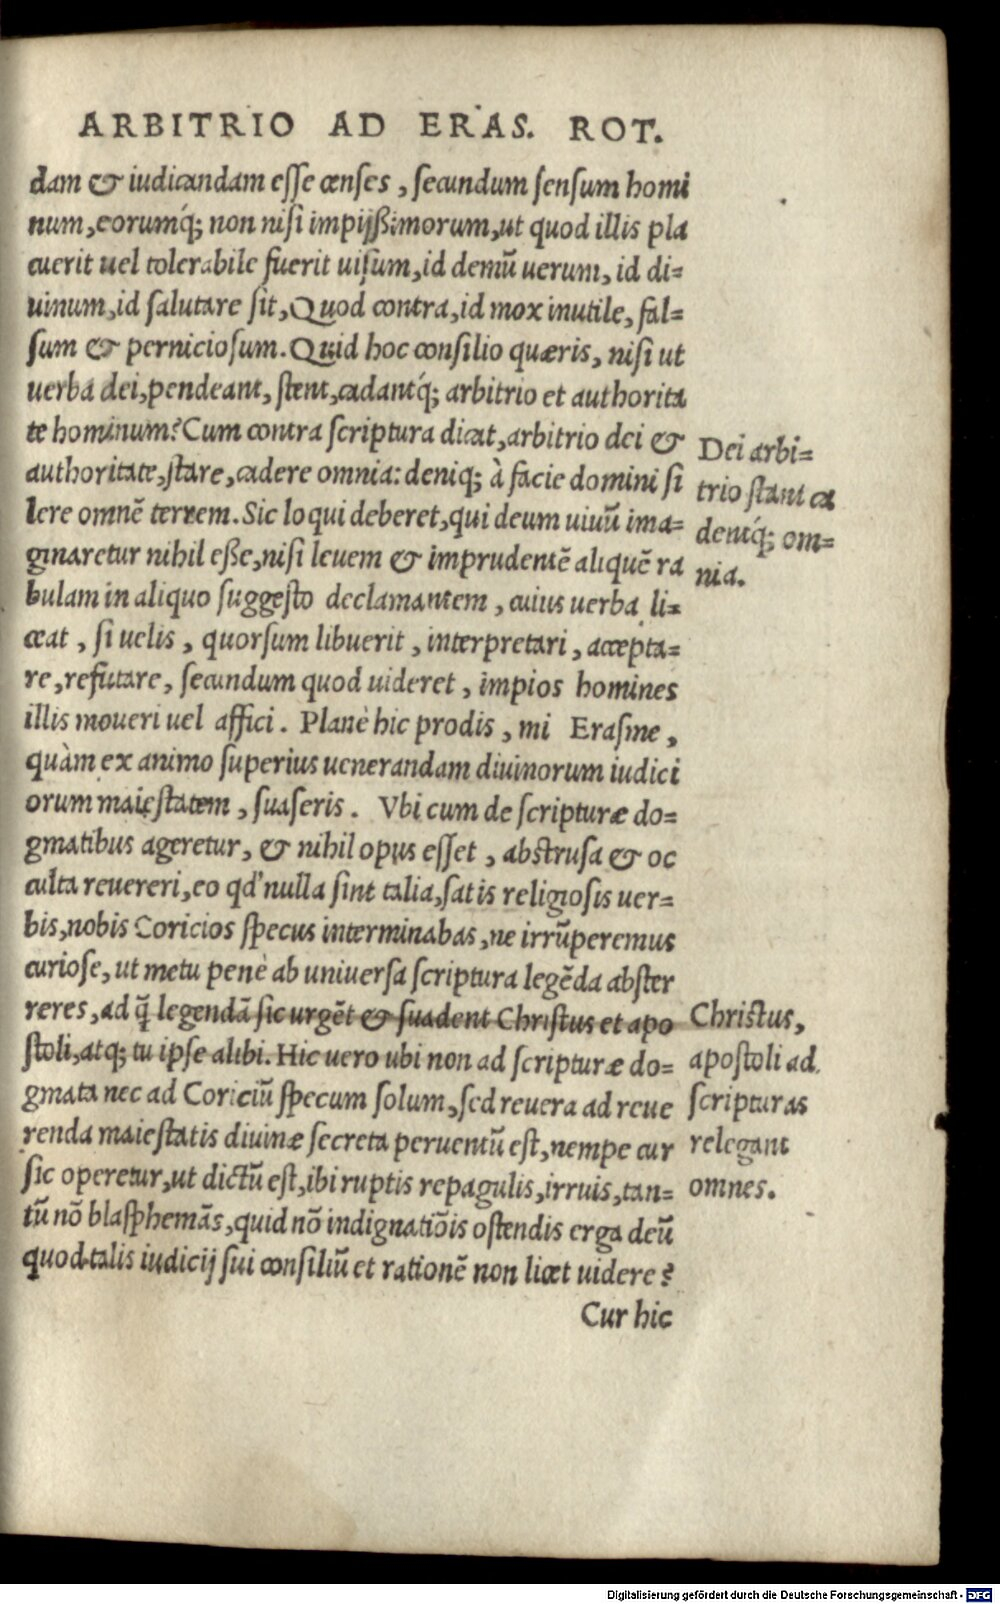 ARBITRIO AD ERAS. ROT.
dam & iudicandam esse censes, secundum sensum homi
num, eorumq́; non nisi impijssimorum, ut quod illis pla
cuerit uel tolerabile fuerit uisum, id demũ uerum, id di=
uinum, id salutare sit, Quod contra, id mox inutile, fal=
sum & perniciosum. Quid hoc consilio quæris, nisi ut
uerba dei, pendeant, stent, cadantq́; arbitrio et authorita
te hominum? Cum contra scriptura dicat, arbitrio dei &
authoritate, stare, cadere omnia: deniq; à facie domini si
lere omnẽ terrem. Sic loqui deberet, qui deum uiuũ ima=
ginaretur nihil esse, nisi leuem & imprudentẽ aliquẽ ra
bulam in aliquo suggesto declamantem, cuius uerba li=
ceat, si uelis, quorsum libuerit, interpretari, accepta=
re, refutare, secundum quod uideret, impios homines
illis moueri uel affici. Planè hic prodis, mi Erasme,
quàm ex animo superius uenerandam diuinorum iudici
orum maiestatem, suaseris. Vbi cum de scripturæ do=
gmatibus ageretur, & nihil opus esset, abstrusa & oc
culta reuereri, eo qd' nulla sint talia, satis religiosis uer=
bis, nobis Coricios specus interminabas, ne irrũperemus
curiose, ut metu penè ab uniuersa scriptura legẽda abster
reres, ad q̃ legendã sic urgẽt & suadent Christus et apo
stoli, atq; tu ipse alibi. Hic uero ubi non ad scripturæ do=
gmata nec ad Coriciũ specum solum, sed reuera ad reue
renda maiestatis diuinæ secreta peruentũ est, nempe cur
sic operetur, ut dictũ est, ibi ruptis repagulis, irruis, tan=
tũ nõ blasphemãs, quid nõ indignatiõis ostendis erga deũ
quod talis iudicij sui consiliũ et rationẽ non licet uidere?
Cur hic
Dei arbi=
trio stant ca
dentq́; om=
nia.
Christus,
apostoli ad
scripturas
relegant
omnes.
Digitalisierung gefördert durch die Deutsche Forschungsgemeinschaft - DFG